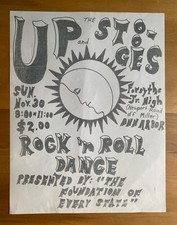 THE
UP and STOOGES
SUN.
NOV. 30
8:00-11:00
$2.00
Forsythe
Jr. High
(Newport Road
off Miller)
ANN ARBOR
ROCK 'n ROLL
DANCE
PRESENTED BY: "THE
FOUNDATION OF
EVERY STATE"